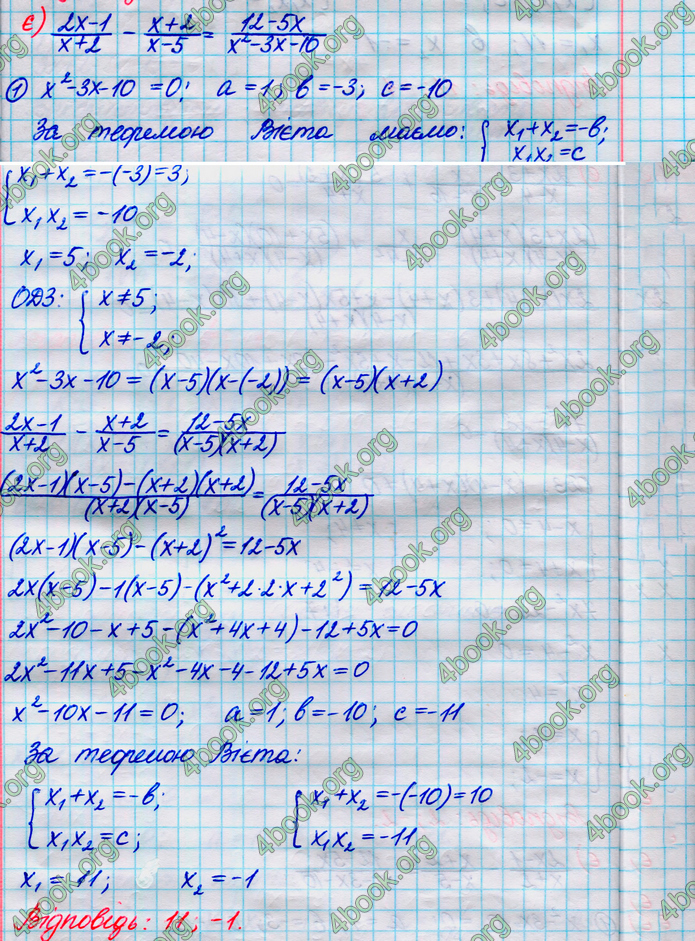 є) (2x-1)/(x+2) - (x+2)/(x-5) = (12-5x)/(x²-3x-10)
① x²-3x-10 =0; a=1; в=-3; c=-10
За теоремою Вієта маємо: { x₁+x₂=-в;
x₁x₂=c
{ x₁+x₂=-(-3)=3;
x₁x₂= -10
x₁=5; x₂=-2;
ОДЗ: { x≠5;
x≠-2;
x²-3x-10=(x-5)(x-(-2))=(x-5)(x+2)
(2x-1)/(x+2) - (x+2)/(x-5) = (12-5x)/((x-5)(x+2))
((2x-1)(x-5)-(x+2)(x+2))/((x+2)(x-5)) = (12-5x)/((x-5)(x+2))
(2x-1)(x-5)-(x+2)²=12-5x
2x(x-5)-1(x-5)-(x²+2·2·x+2²)=12-5x
2x²-10-x+5-(x²+4x+4)-12+5x=0
2x²-11x+5-x²-4x-4-12+5x=0
x²-10x-11=0; a=1; в=-10; c=-11
За теоремою Вієта:
{ x₁+x₂=-в; { x₁+x₂=-(-10)=10
x₁x₂=c; x₁x₂=-11
x₁=11; x₂=-1
Відповідь: 11; -1.
4book.org